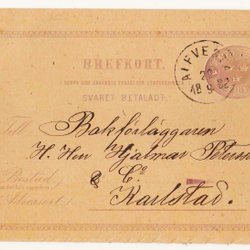 BREFKORT.
SVARET BETALADT.
ALFVE
18 9 82
Till Bokförläggaren
H. Herr Hjalmar Peterson
& Co
Karlstad.
Bostad